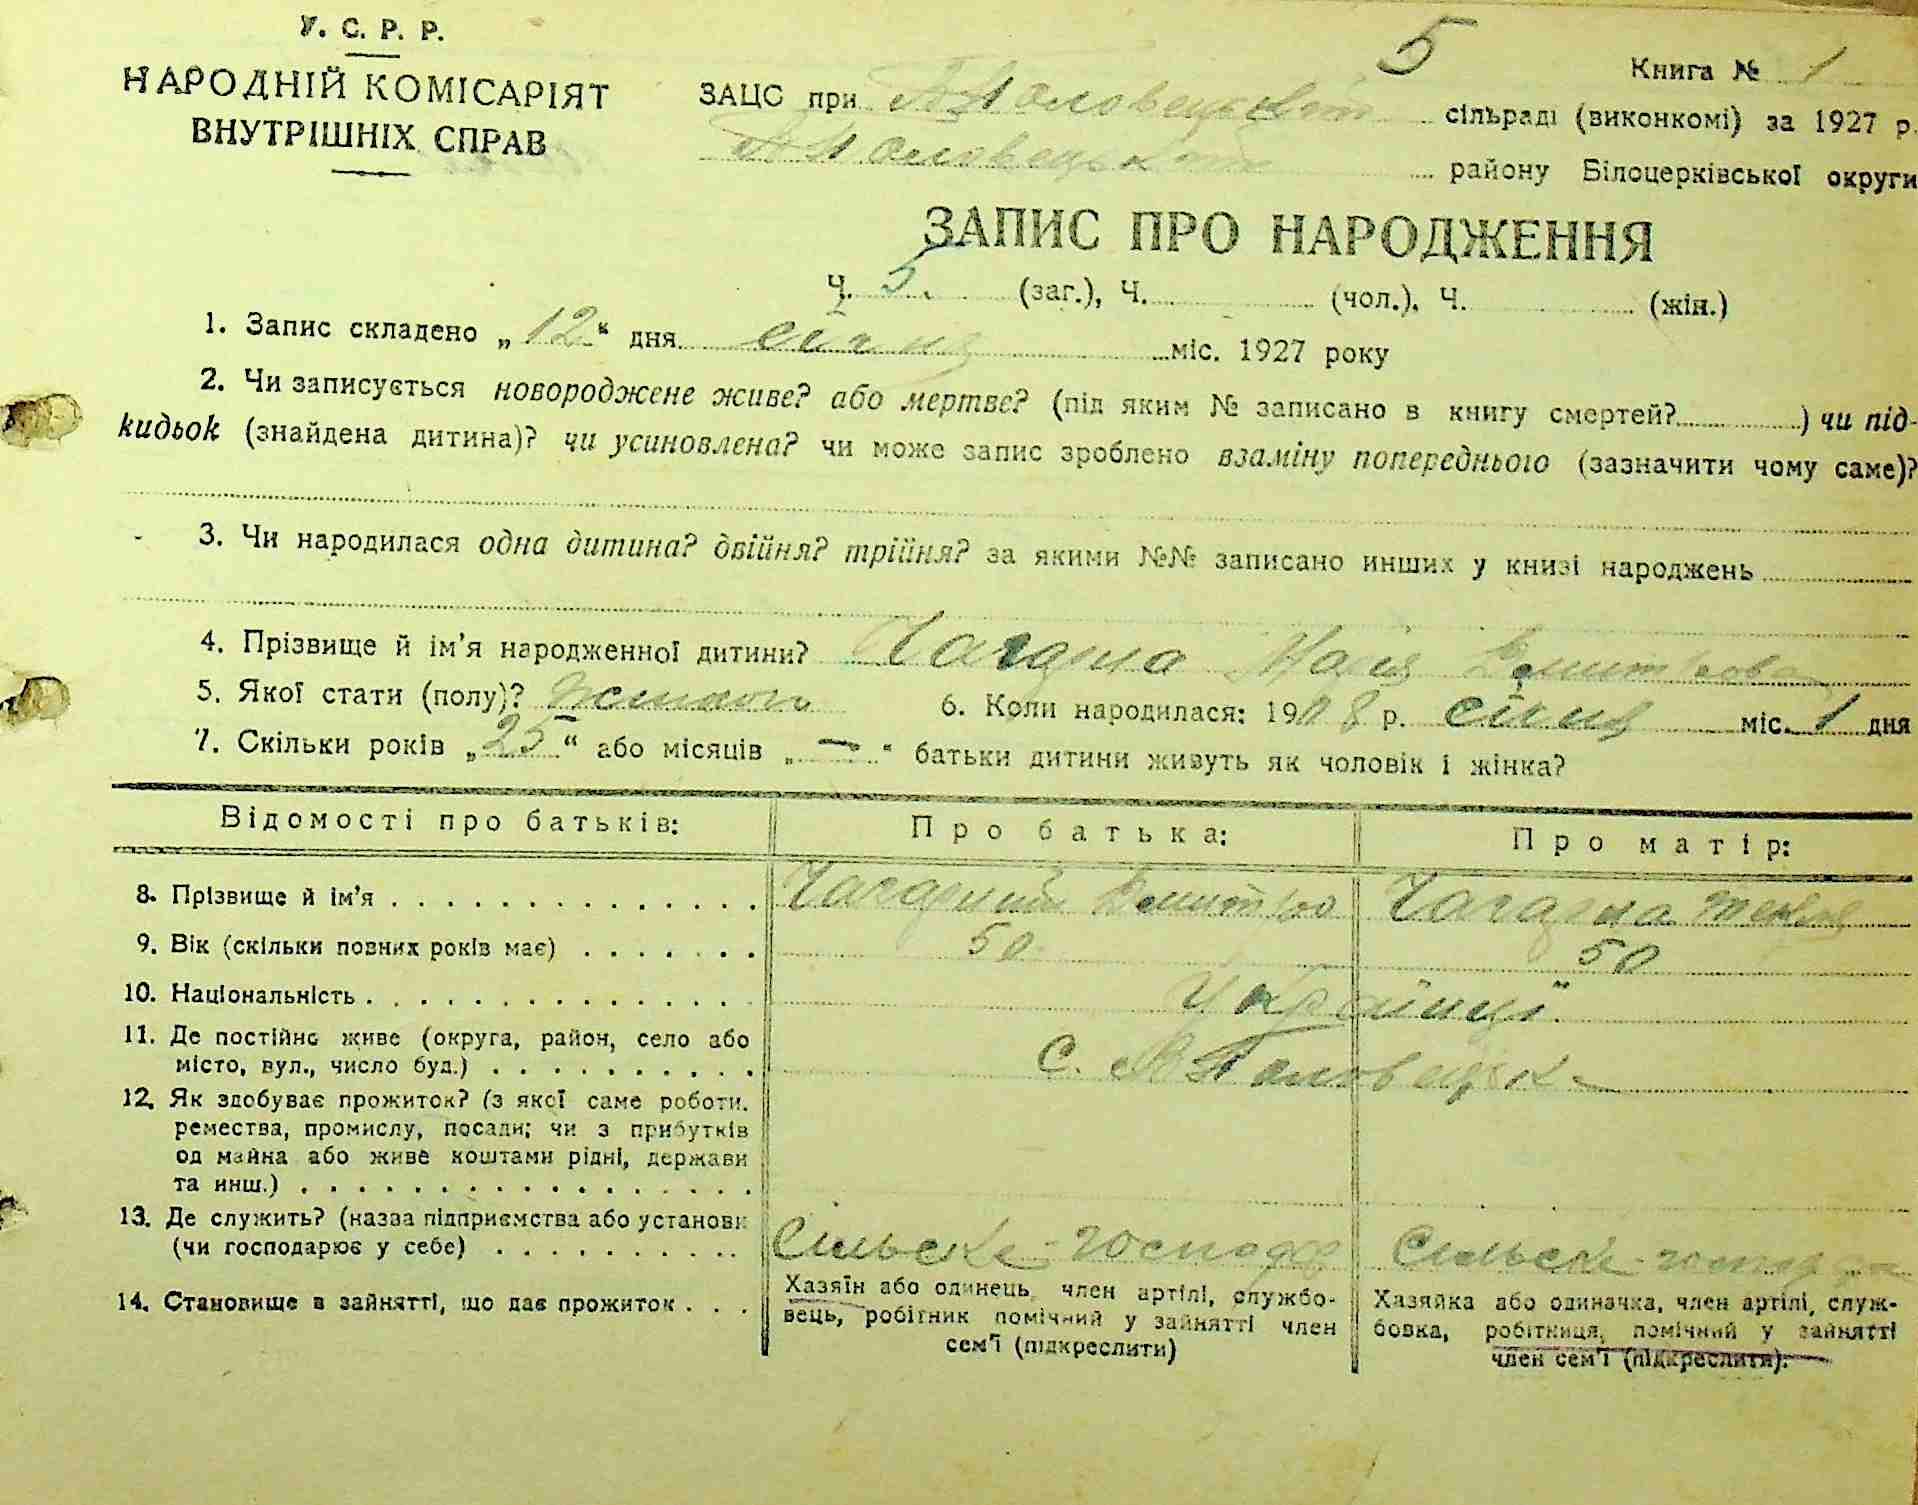 У. С. Р. Р.
НАРОДНІЙ КОМІСАРІЯТ
ВНУТРІШНІХ СПРАВ
5
Книга № 1
ЗАЦС при сільраді (виконкомі) за 1927 р.
району Білоцерківської округи
ЗАПИС ПРО НАРОДЖЕННЯ
Ч. 5. (заг.), Ч. (чол.), Ч. (жін.)
1. Запис складено „12“ дня січня міс. 1927 року
2. Чи записується новороджене живе? або мертве? (під яким № записано в книгу смертей? ) чи під-
кидьок (знайдена дитина)? чи усиновлена? чи може запис зроблено взаміну попереднього (зазначити чому саме)?
3. Чи народилася одна дитина? двійня? трійня? за якими №№ записано инших у книзі народжень
4. Прізвище й ім’я народженної дитини? Марія
5. Якої стати (полу)? 6. Коли народилася: 1908 р. січня міс. 1 дня
7. Скільки років „25“ або місяців „—“ батьки дитини живуть як чоловік і жінка?
Відомості про батьків: Про батька: Про матір:
8. Прізвище й ім’я
9. Вік (скільки повних років має) 50 50
10. Національність Українці
11. Де постійно живе (округа, район, село або
місто, вул., число буд.) с.
12. Як здобуває прожиток? (з якої саме роботи,
ремества, промислу, посади; чи з прибутків
од майна або живе коштами рідні, держави
та инш.)
13. Де служить? (назва підприємства або установи
(чи господарює у себе) Сільске
14. Становище в зайнятті, що дає прожиток
Хазяїн або одинець, член артілі, службо-
вець, робітник помічний у зайнятті член
сем’ї (підкреслити)
Хазяйка або одиначка, член артілі, служ-
бовка, робітниця, помічний у зайнятті
член сем’ї (підкреслити).